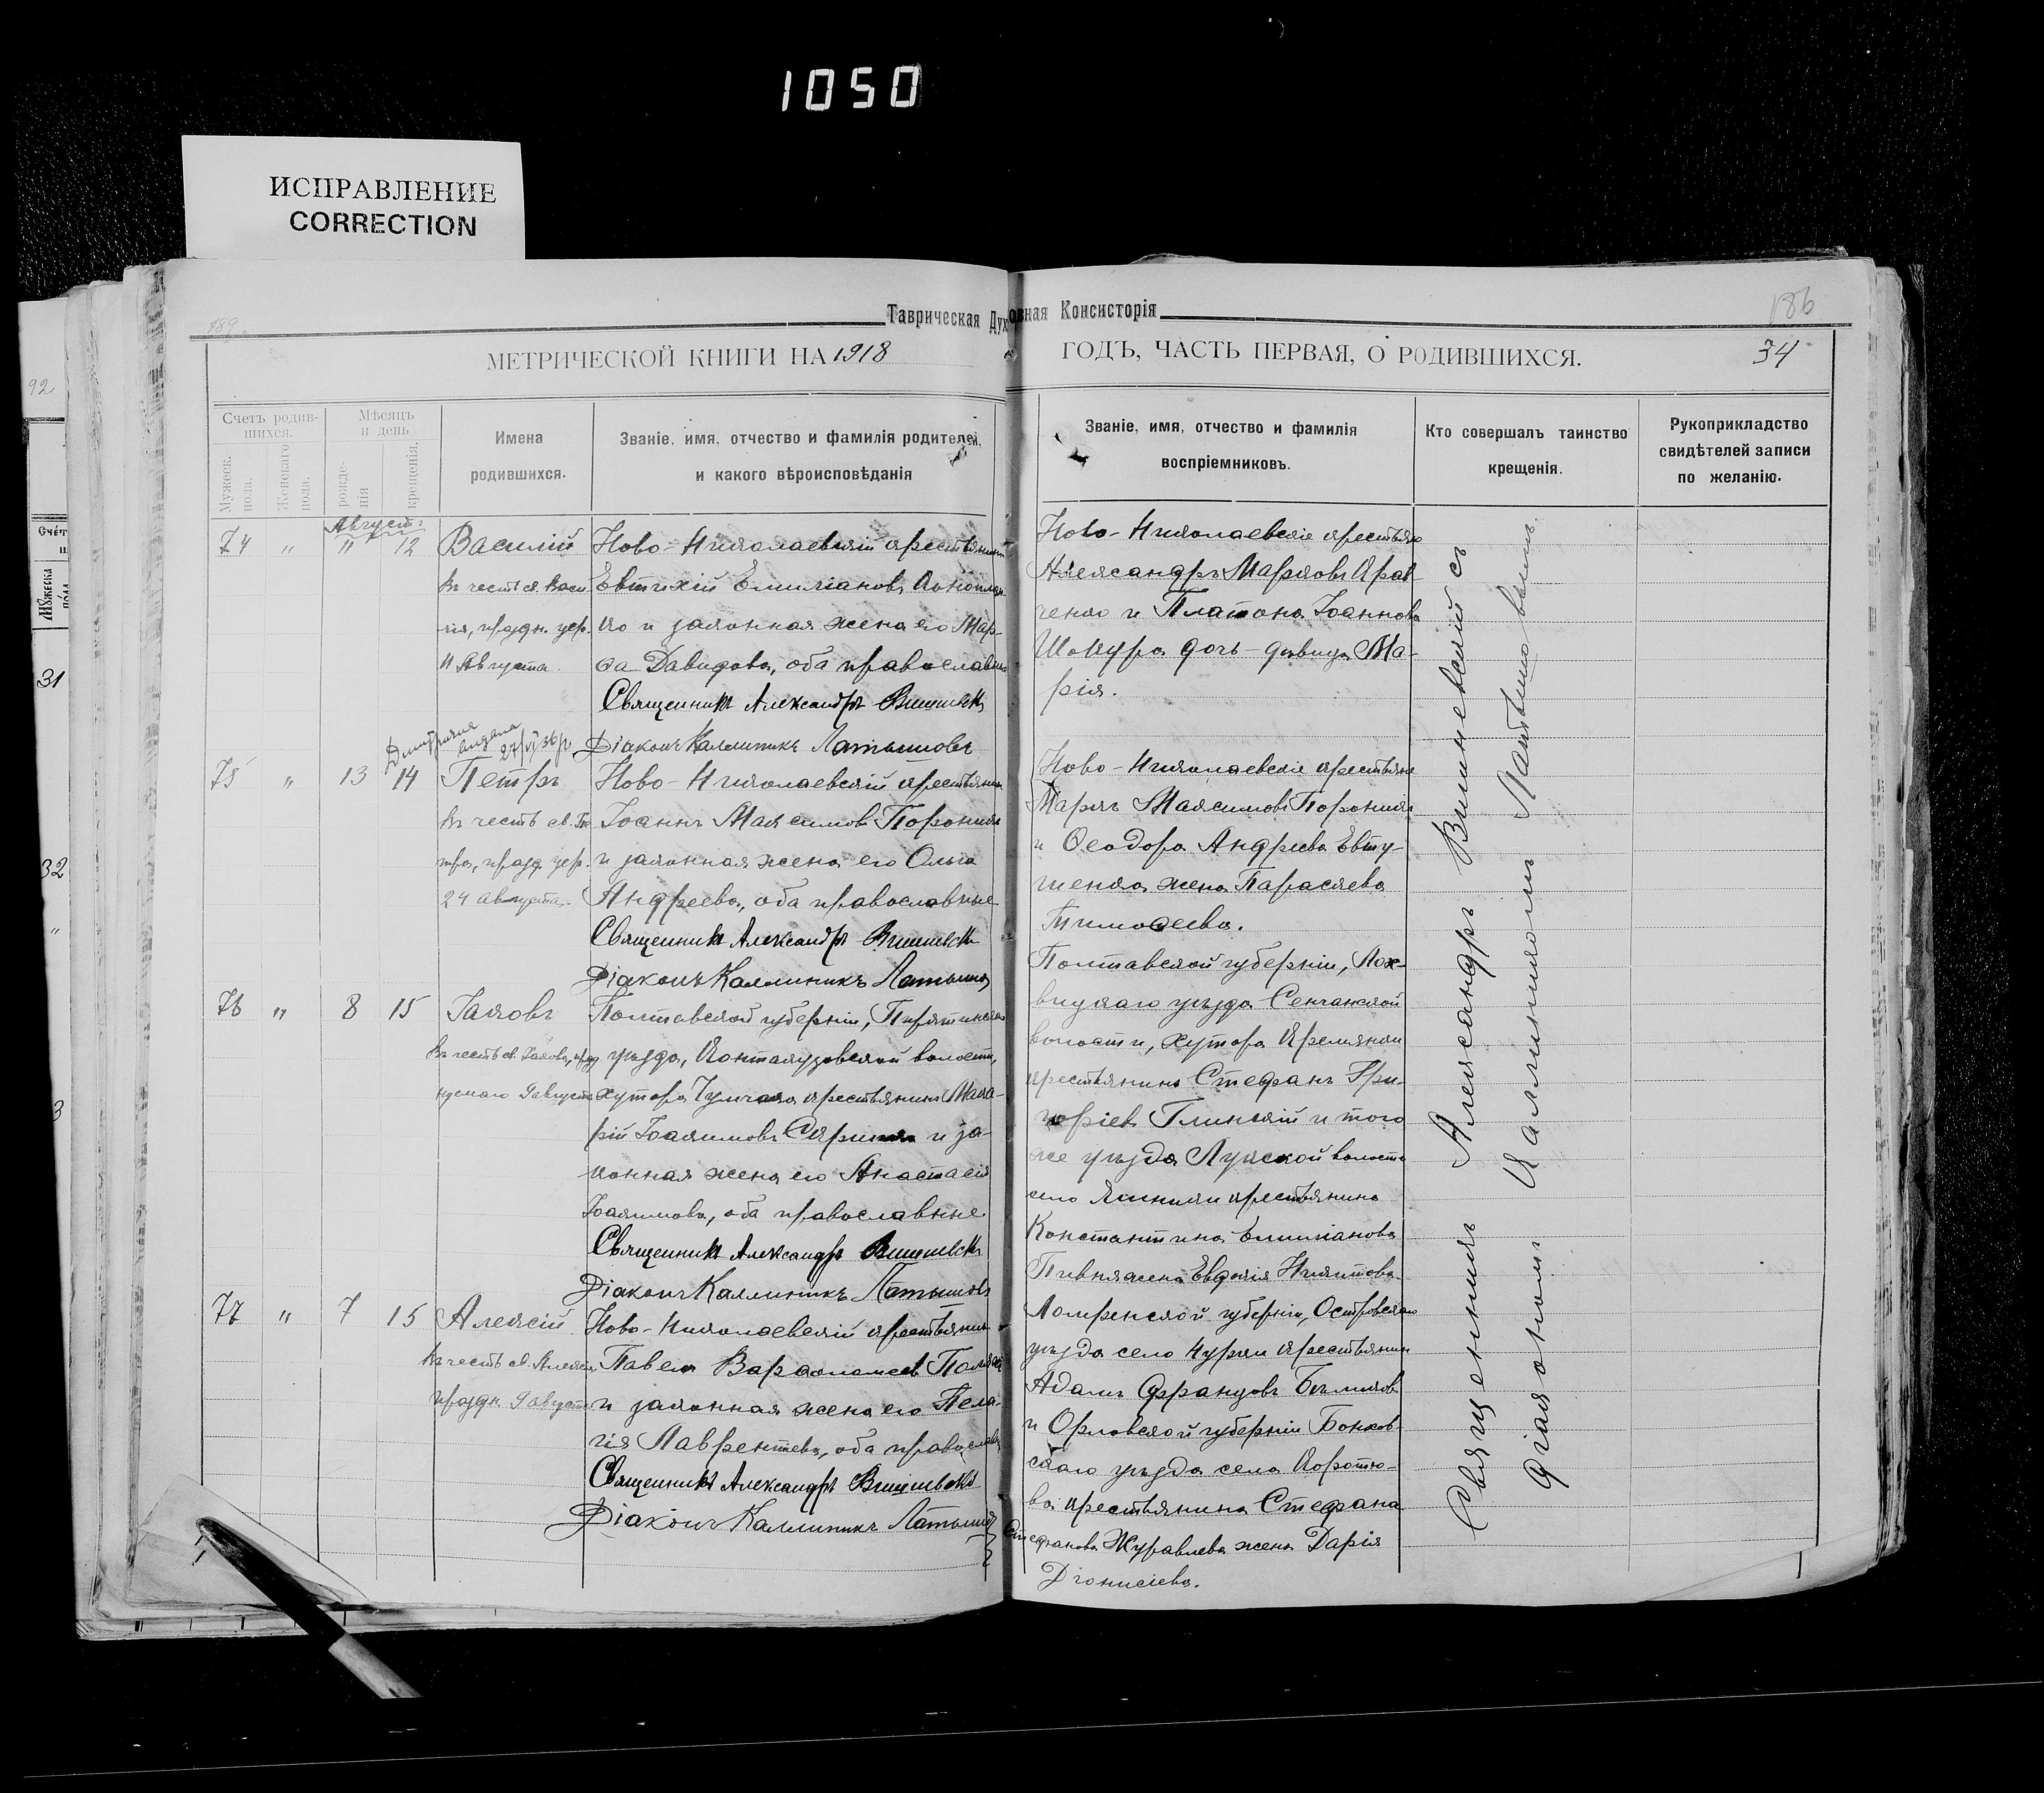 1050
ИСПРАВЛЕНИЕ
CORRECTION
Таврическая Духовная Консисторія
189
186
МЕТРИЧЕСКОЙ КНИГИ НА 1918
ГОДЪ, ЧАСТЬ ПЕРВАЯ, О РОДИВШИХСЯ.
34
92
Счетъ родив-
шихся.
Мужеск.
пола.
Женскаго
пола.
Мѣсяцъ
и день
рожде-
нія
крещенія.
Имена
родившихся.
Званіе, имя, отчество и фамилія родителей,
и какого вѣроисповѣданія
Званіе, имя, отчество и фамилія
воспріемниковъ.
Кто совершалъ таинство
крещенія.
Рукоприкладство
свидѣтелей записи
по желанію.
31
32
3
Августъ
74 " 11 12
Василій
въ честь св. Васи-
лія, праздн. цер.
11 Августа
Ново-Николаевскій крестьянинъ
Евтихій Емиліановъ
и законная жена его Мар-
ѳа Давидова, оба православные
Священникъ Александръ Вишневскій
Діаконъ Каллиникъ Латышовъ
Ново-Николаевскіе крестьяне
Александръ Марковъ Крав-
ченко и Платона Іоаннова
дочь-девица Ма-
рія.
27/VI 36 г.
75 " 13 14
Петръ
въ честь св. Пе-
тра, празд. цер.
24 августа.
Ново-Николаевскій крестьянинъ
Іоаннъ Максимовъ
и законная жена его Ольга
Андреева, оба православные
Священникъ Александръ Вишневскій
Діаконъ Каллиникъ Латышовъ
Ново-Николаевскіе крестьяне
Маркъ Максимовъ
и Ѳеодора Андреева Евту-
шенка жена Параскева
Тимоѳеева.
76 " 8 15
Іаковъ
въ честь св. Іакова, празд
нуемаго 9 августа
Полтавской губерніи, Пирятинскаго
уѣзда, волости,
хутора крестьянинъ Мака-
рій Іоакимовъ и за-
конная жена его Анастасія
Іоакимова, оба православные
Священникъ Александръ Вишневскій
Діаконъ Каллиникъ Латышовъ
Полтавской губерніи, Лох-
вицкаго уѣзда Сенчанской
волости, хутора
крестьянинъ Стефанъ Гри-
горіевъ Глинскій и того
же уѣзда Луцкой волости
село крестьянина
Константина Емиліанова
Пивня жена Евдокія Никитова
77 " 7 15
Алексій
въ честь св. Алексія
праздн. 9 августа
Ново-Николаевскій крестьянинъ
Павелъ Варѳоломеевъ
и законная жена его Пела-
гія Лаврентьева, оба православные
Священникъ Александръ Вишневскій
Діаконъ Каллиникъ Латышовъ
губерніи, Островскаго
уѣзда село крестьянинъ
Адамъ Францовъ
и Орловской губерніи
скаго уѣзда села
крестьянина Стефана
Стефанова Журавлева жена Дарія
Діонисіева.
Священникъ Александръ Вишневскій съ
діакономъ Каллиникомъ Латышовымъ